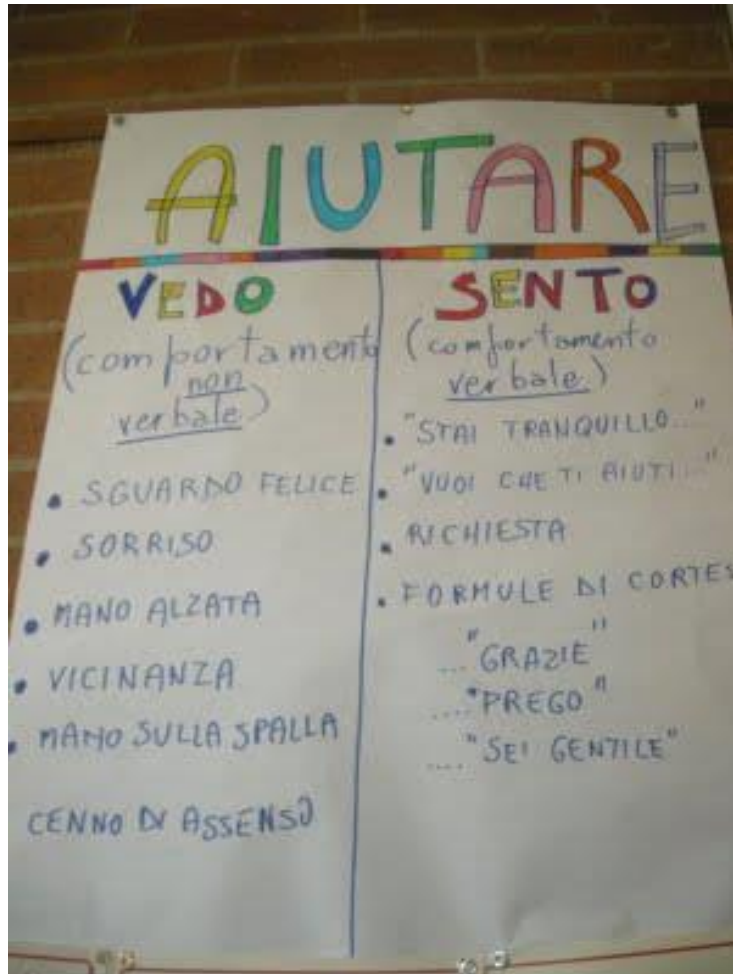 AIUTARE
VEDO
(comportamento
non
verbale)
• SGUARDO FELICE
• SORRISO
• MANO ALZATA
• VICINANZA
• MANO SULLA SPALLA
CENNO DI ASSENSO
SENTO
(comportamento
verbale)
• "STAI TRANQUILLO..."
• "VUOI CHE TI AIUTI..."
• RICHIESTA
• FORMULE DI CORTES
... "GRAZIE"
.... "PREGO"
.... "SEI GENTILE"